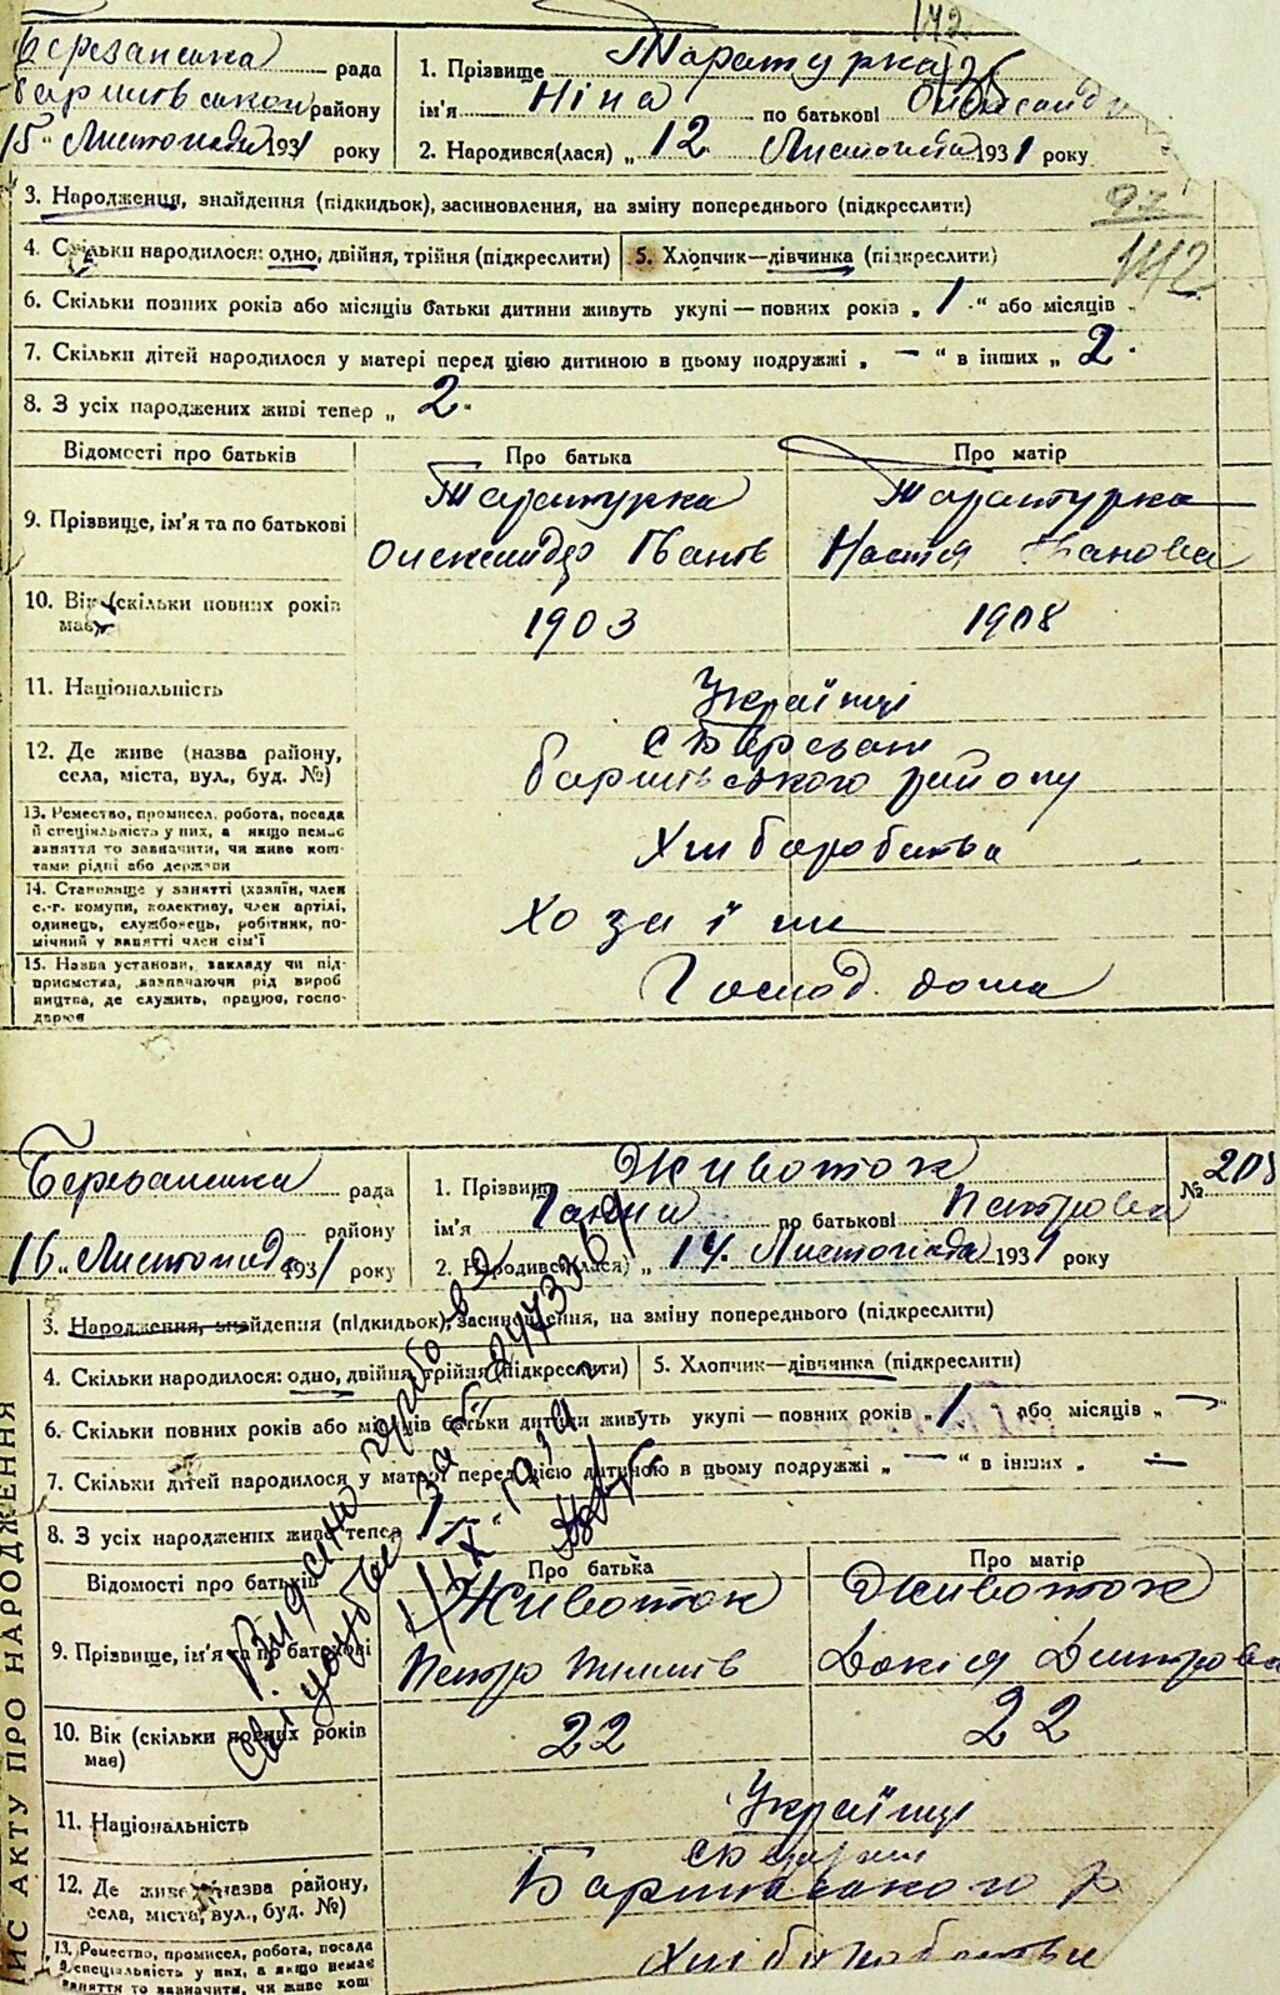 142.
Березанська рада
Баришівського району
15 " Листопада 1931 року
1. Прізвище Таратурка
ім'я Ніна по батькові
2. Народився(лася) „ 12 Листопада 1931 року
3. Народження, знайдення (підкидьок), засиновлення, на зміну попереднього (підкреслити)
97
142
4. Скільки народилося: одно, двійня, трійня (підкреслити) 5. Хлопчик—дівчинка (підкреслити)
6. Скільки повних років або місяців батьки дитини живуть укупі — повних років „ 1 " або місяців
7. Скільки дітей народилося у матері перед цією дитиною в цьому подружжі „ — " в інших „ 2
8. З усіх народжених живі тепер „ 2.
Відомості про батьків Про батька Про матір
9. Прізвище, ім'я та по батькові
Таратурка Таратурка
Олександр Іванів Настя Іванова
10. Вік (скільки повних років має)
1903 1908
11. Національність
Українці
12. Де живе (назва району,
села, міста, вул., буд. №)
с Березань
Баришівського району
13. Ремество, промисел, робота, посада
й спеціяльність у них, а якщо немає
заняття то зазначити, чи живе кош-
тами рідні або держави
Хліборобства
14. Становище у занятті (хазяїн, член
с.-г. комуни, колективу, член артілі,
одинець, службовець, робітник, по-
мічний у занятті член сім'ї
Хозаїн
15. Назва установи, закладу чи під-
приємства, зазначаючи рід вироб
ництва, де служить, працює, госпо-
дарює
Господ. дома
Березанська рада
району
16 „ Листопада 1931 року
1. Прізвище Животок
№ 208
ім'я Ганни по батькові Петровна
2. Народився(лася) „ 14. Листопада 1931 року
3. Народження, знайдення (підкидьок), засиновлення, на зміну попереднього (підкреслити)
4. Скільки народилося: одно, двійня, трійня (підкреслити) 5. Хлопчик—дівчинка (підкреслити)
6. Скільки повних років або місяців батьки дитини живуть укупі — повних років „ 1 " або місяців „ — "
7. Скільки дітей народилося у матері перед цією дитиною в цьому подружжі „ — " в інших „ —
8. З усіх народжених живі тепер „ 1
Відомості про батьків Про батька Про матір
9. Прізвище, ім'я та по батькові
Животок Животок
Петро Докія Дмитрова
10. Вік (скільки повних років
має)
22 22
11. Національність
Українці
12. Де живе (назва району,
села, міста, вул., буд. №)
Баришівського р
13. Ремество, промисел, робота, посада
й спеціяльність у них, а якщо немає
заняття то зазначити, чи живе кош
Хліборобства
Видано
свідоцтво за
ИС АКТУ ПРО НАРОДЖЕННЯ